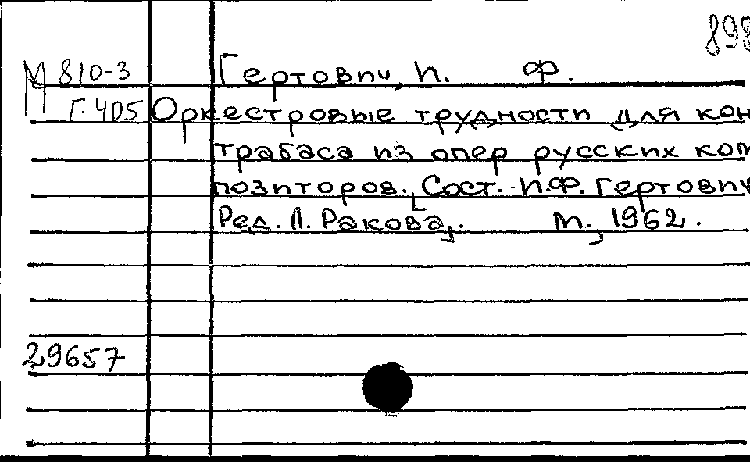 898
М 810-3 Гертович, И. Ф.
Г.405 Оркестровые трудности для кон
трабаса из опер русских ком
позиторов. Сост. И.Ф. Гертович
Ред. Л. Ракова. М., 1962.
29657